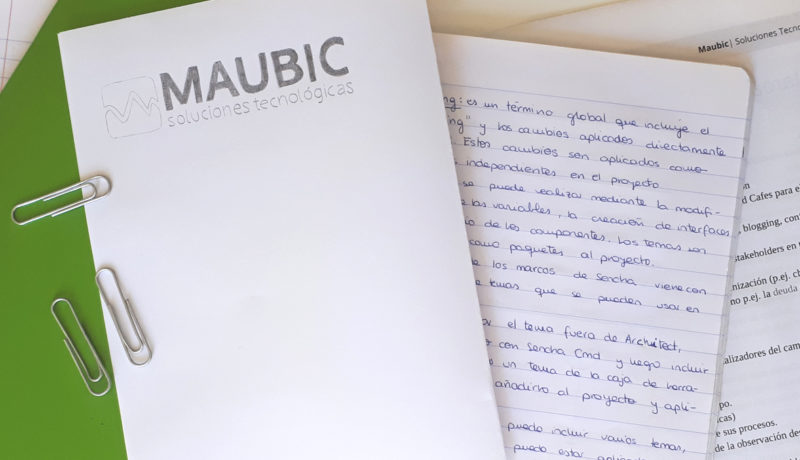 MAUBIC
soluciones tecnológicas
Maubic| Soluciones Tecno
ng: es un término global que incluye el
ng" y los cambios aplicados directamente
. Estos cambios sen aplicados como
independientes en el proyecto
se puede realizar mediante la modif-
las variables, la creación de interfaces
de los componentes. Los temas son
como paquetes al proyecto.
los marcos de sencha vienecon
temas que se pueden usar en
el tema fuera de Architect,
con Sencha Cmd y luego incluir
un tema de la caja de herra-
añadirlo al proyecto y apli-
puedo incluir varios temas,
puedo estar
n
d Cafes para e
, blogging, con
stakeholders en
nización (p.ej. c
no p.ej. la deuda
alizadores del cam
po.
cas)
e sus procesos.
de la observación de